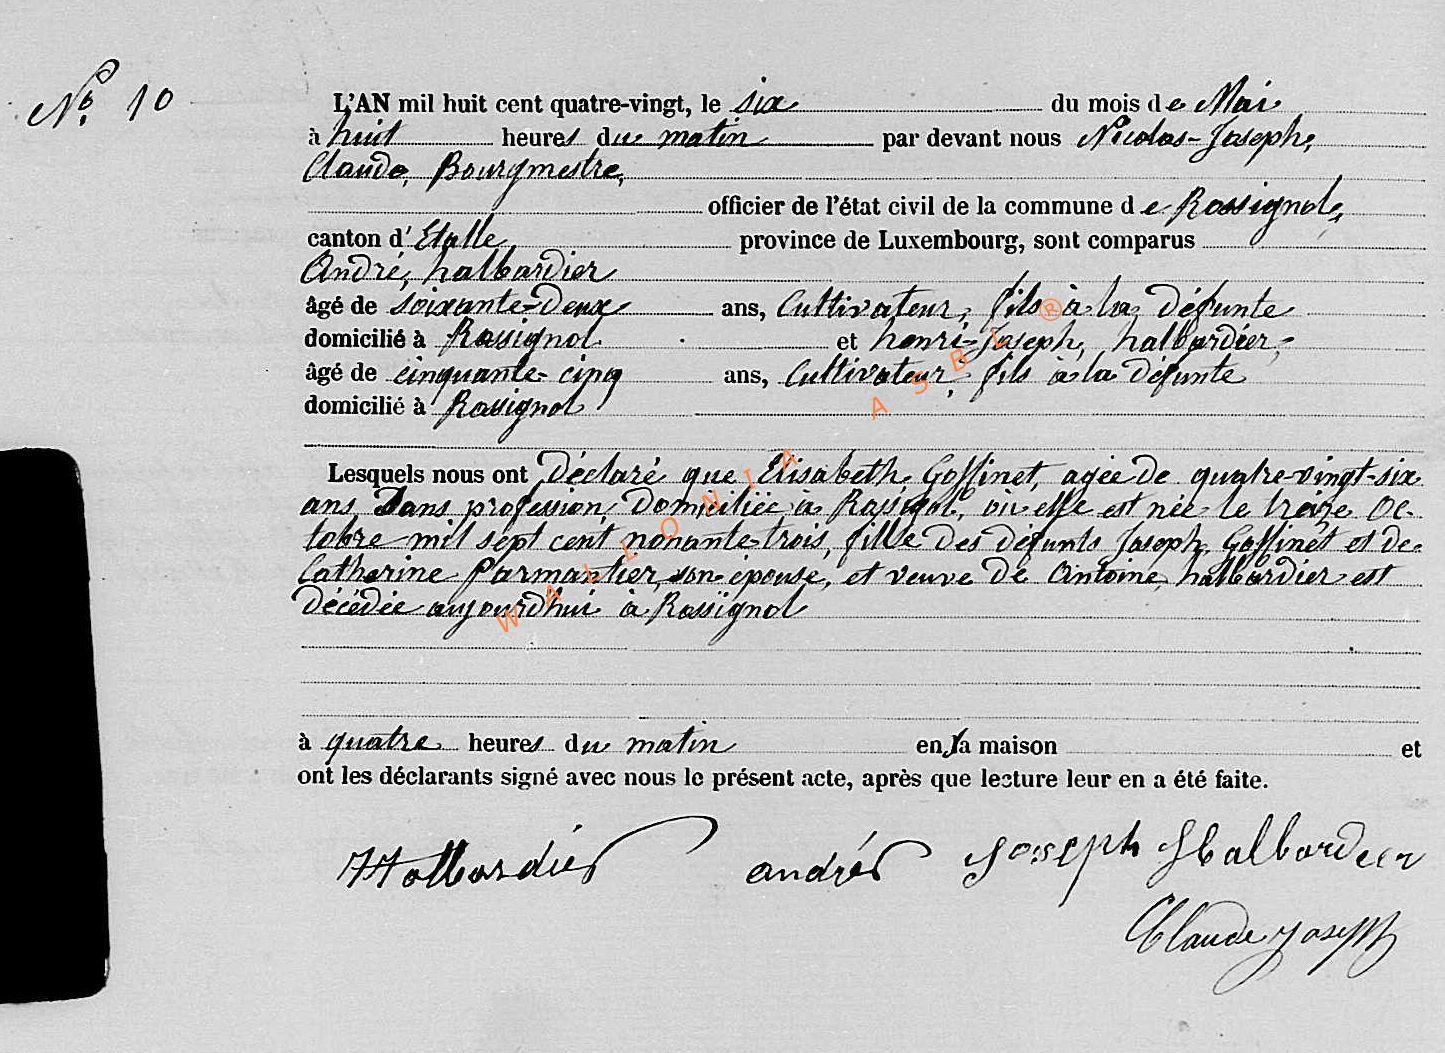 No. 10
L'AN mil huit cent quatre-vingt, le six du mois de Mai
à huit heures du matin par devant nous Nicolas-Joseph,
Claude, Bourgmestre,
officier de l'état civil de la commune de Rossignol,
canton d'Etalle province de Luxembourg, sont comparus
André, halbardier
âgé de soixante-deux ans, Cultivateur, fils à la défunte
domicilié à Rossignol et henri-Joseph, halbardier,
âgé de cinquante-cinq ans, Cultivateur, fils à la défunte
domicilié à Rossignol
Lesquels nous ont Déclaré que Elisabeth Goffinet, agée de quatre-vingt-six
ans, Sans profession, Domiciliée à Rossignol, où elle est née le treize Oc-
tobre mil sept cent nonante-trois, fille des défunts Joseph, Goffinet et de
Catherine Parmantier, son épouse, et veuve de Antoine, halbardier est
décédée aujourdhui à Rossignol
à quatre heures du matin en sa maison et
ont les déclarants signé avec nous le présent acte, après que lecture leur en a été faite.
Halbardier andré Joseph Halbardier
Claude Joseph
WALLONIA ASBL ®